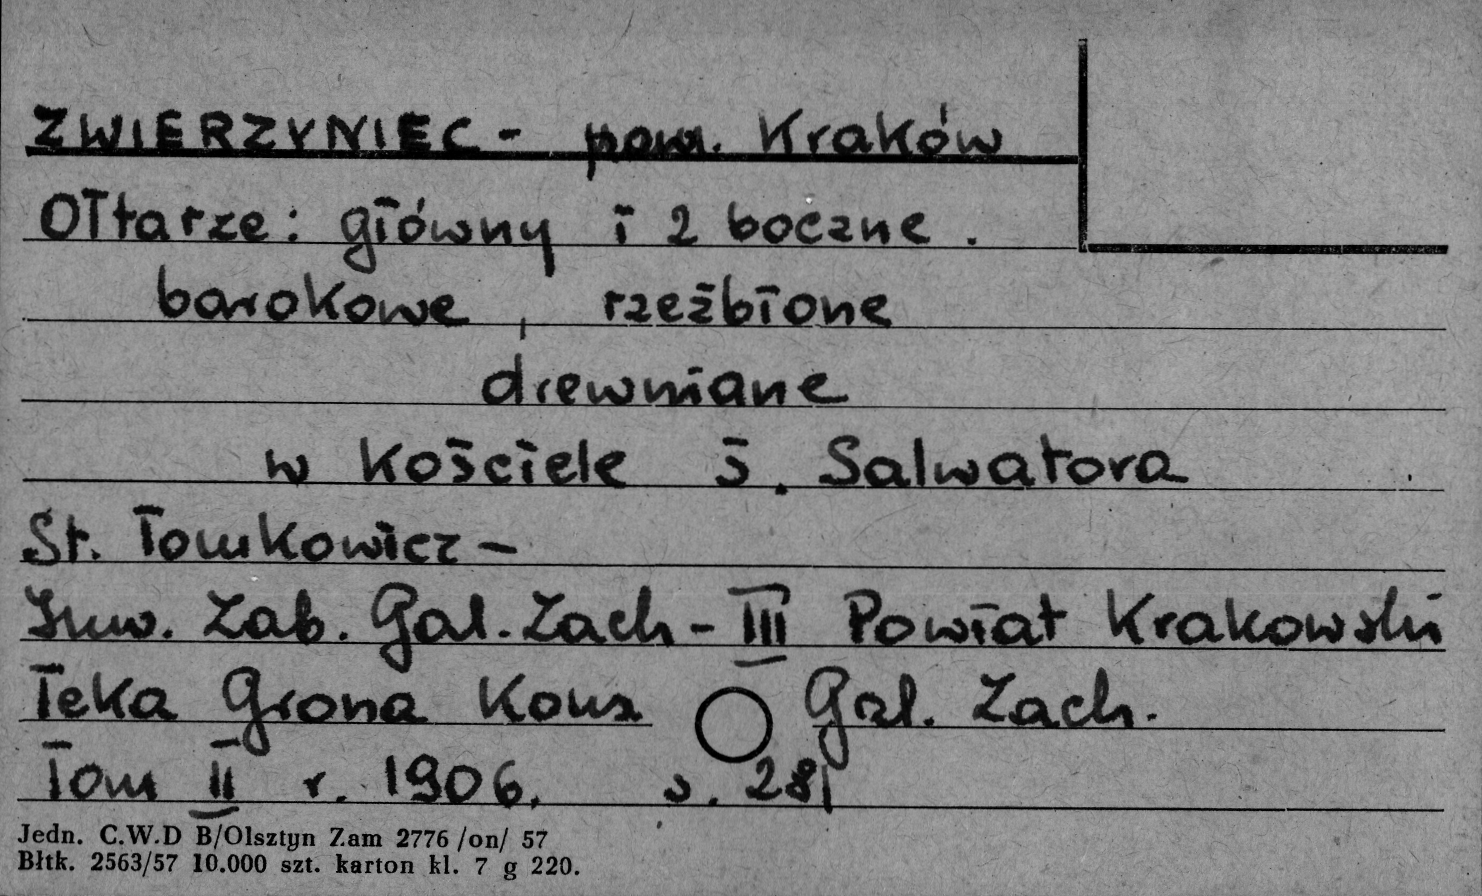 ZWIERZYNIEC - pow. Kraków
Ołtarze: główny i 2 boczne.
barokowe, rzeźbione
drewniane
w kościele ś. Salwatora
St. Tomkowicz -
Inw. Zab. Gal. Zach - III Powiat Krakowski
Teka Grona Kons Gal. Zach.
Tom II r. 1906. s. 281
Jedn. C.W.D B/Olsztyn Zam 2776 /on/ 57
Błtk. 2563/57 10.000 szt. karton kl. 7 g 220.